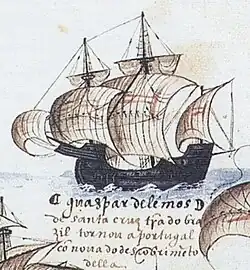 ¶ guaspar de lemos D
de santa cruz trã do bra
zil tornou a portugal
cõ noua do descobrimẽto
della.